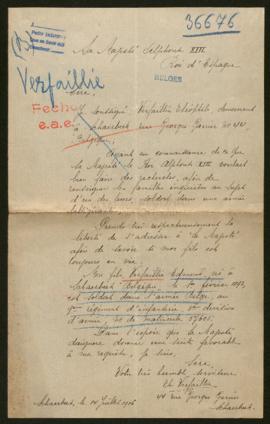 36676
A Sa Majesté Alphonse XIII
Roi d'Espagne
BELGES
Verfaillie
Sire,
Fecho
e.a.e.
Le soussigné Verfaillie Théophile, demeurant
à Schaerbeek, rue Georges 44
Belgique,
Ayant eu connaissance de ce que
Sa Majesté le Roi Alphonse XIII voulait
bien faire des recherches, afin de
renseigner les familles inquiètes au sujet
d'un des leurs, soldat dans une armée
belligérante,
Prends très respectueusement la
liberté de m'adresser à Sa Majesté
afin de savoir si mon fils est
toujours en vie.
Mon fils, Verfaillie Edmond, né à
Schaerbeek Belgique, le 1er février 1892,
est soldat dans l'armée belge, au
9me régiment d'infanterie, division
d'armée, No de matricule
Dans l'espoir que Sa Majesté
daignera donner une suite favorable
à ma requête, je suis,
Sire,
Votre très humble serviteur
Th Verfaillie
44 rue Georges
Schaerbeek
Schaerbeek, le Juillet